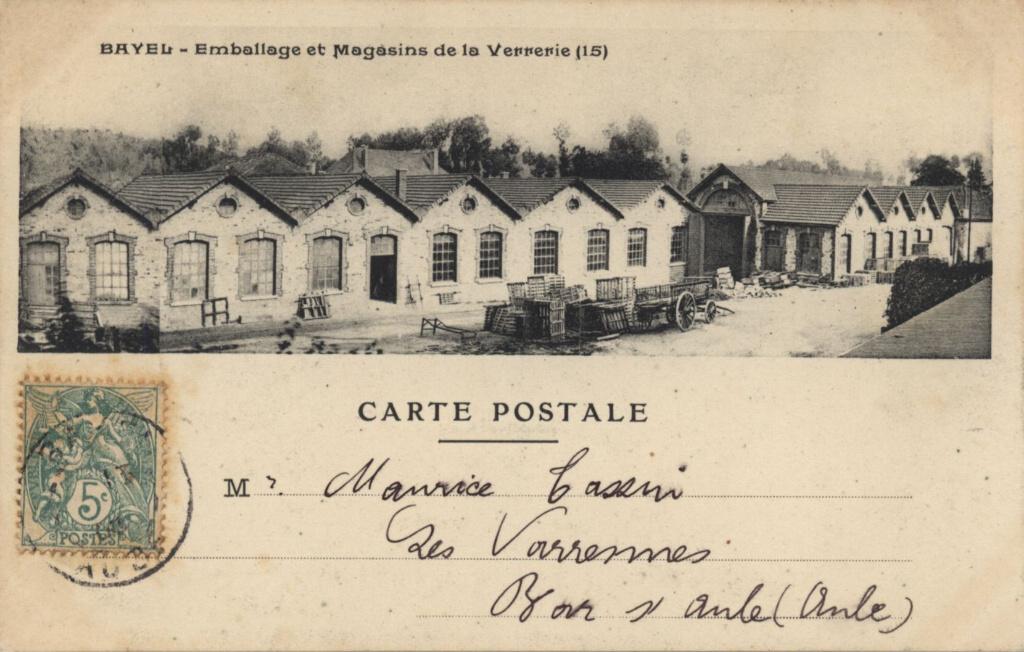 BAYEL - Emballage et Magasins de la Verrerie (15)
CARTE POSTALE
5c
POSTES
AUBE
Mr. Maurice Cassin
Les Varrennes
Bar s/ Aube (Aube)